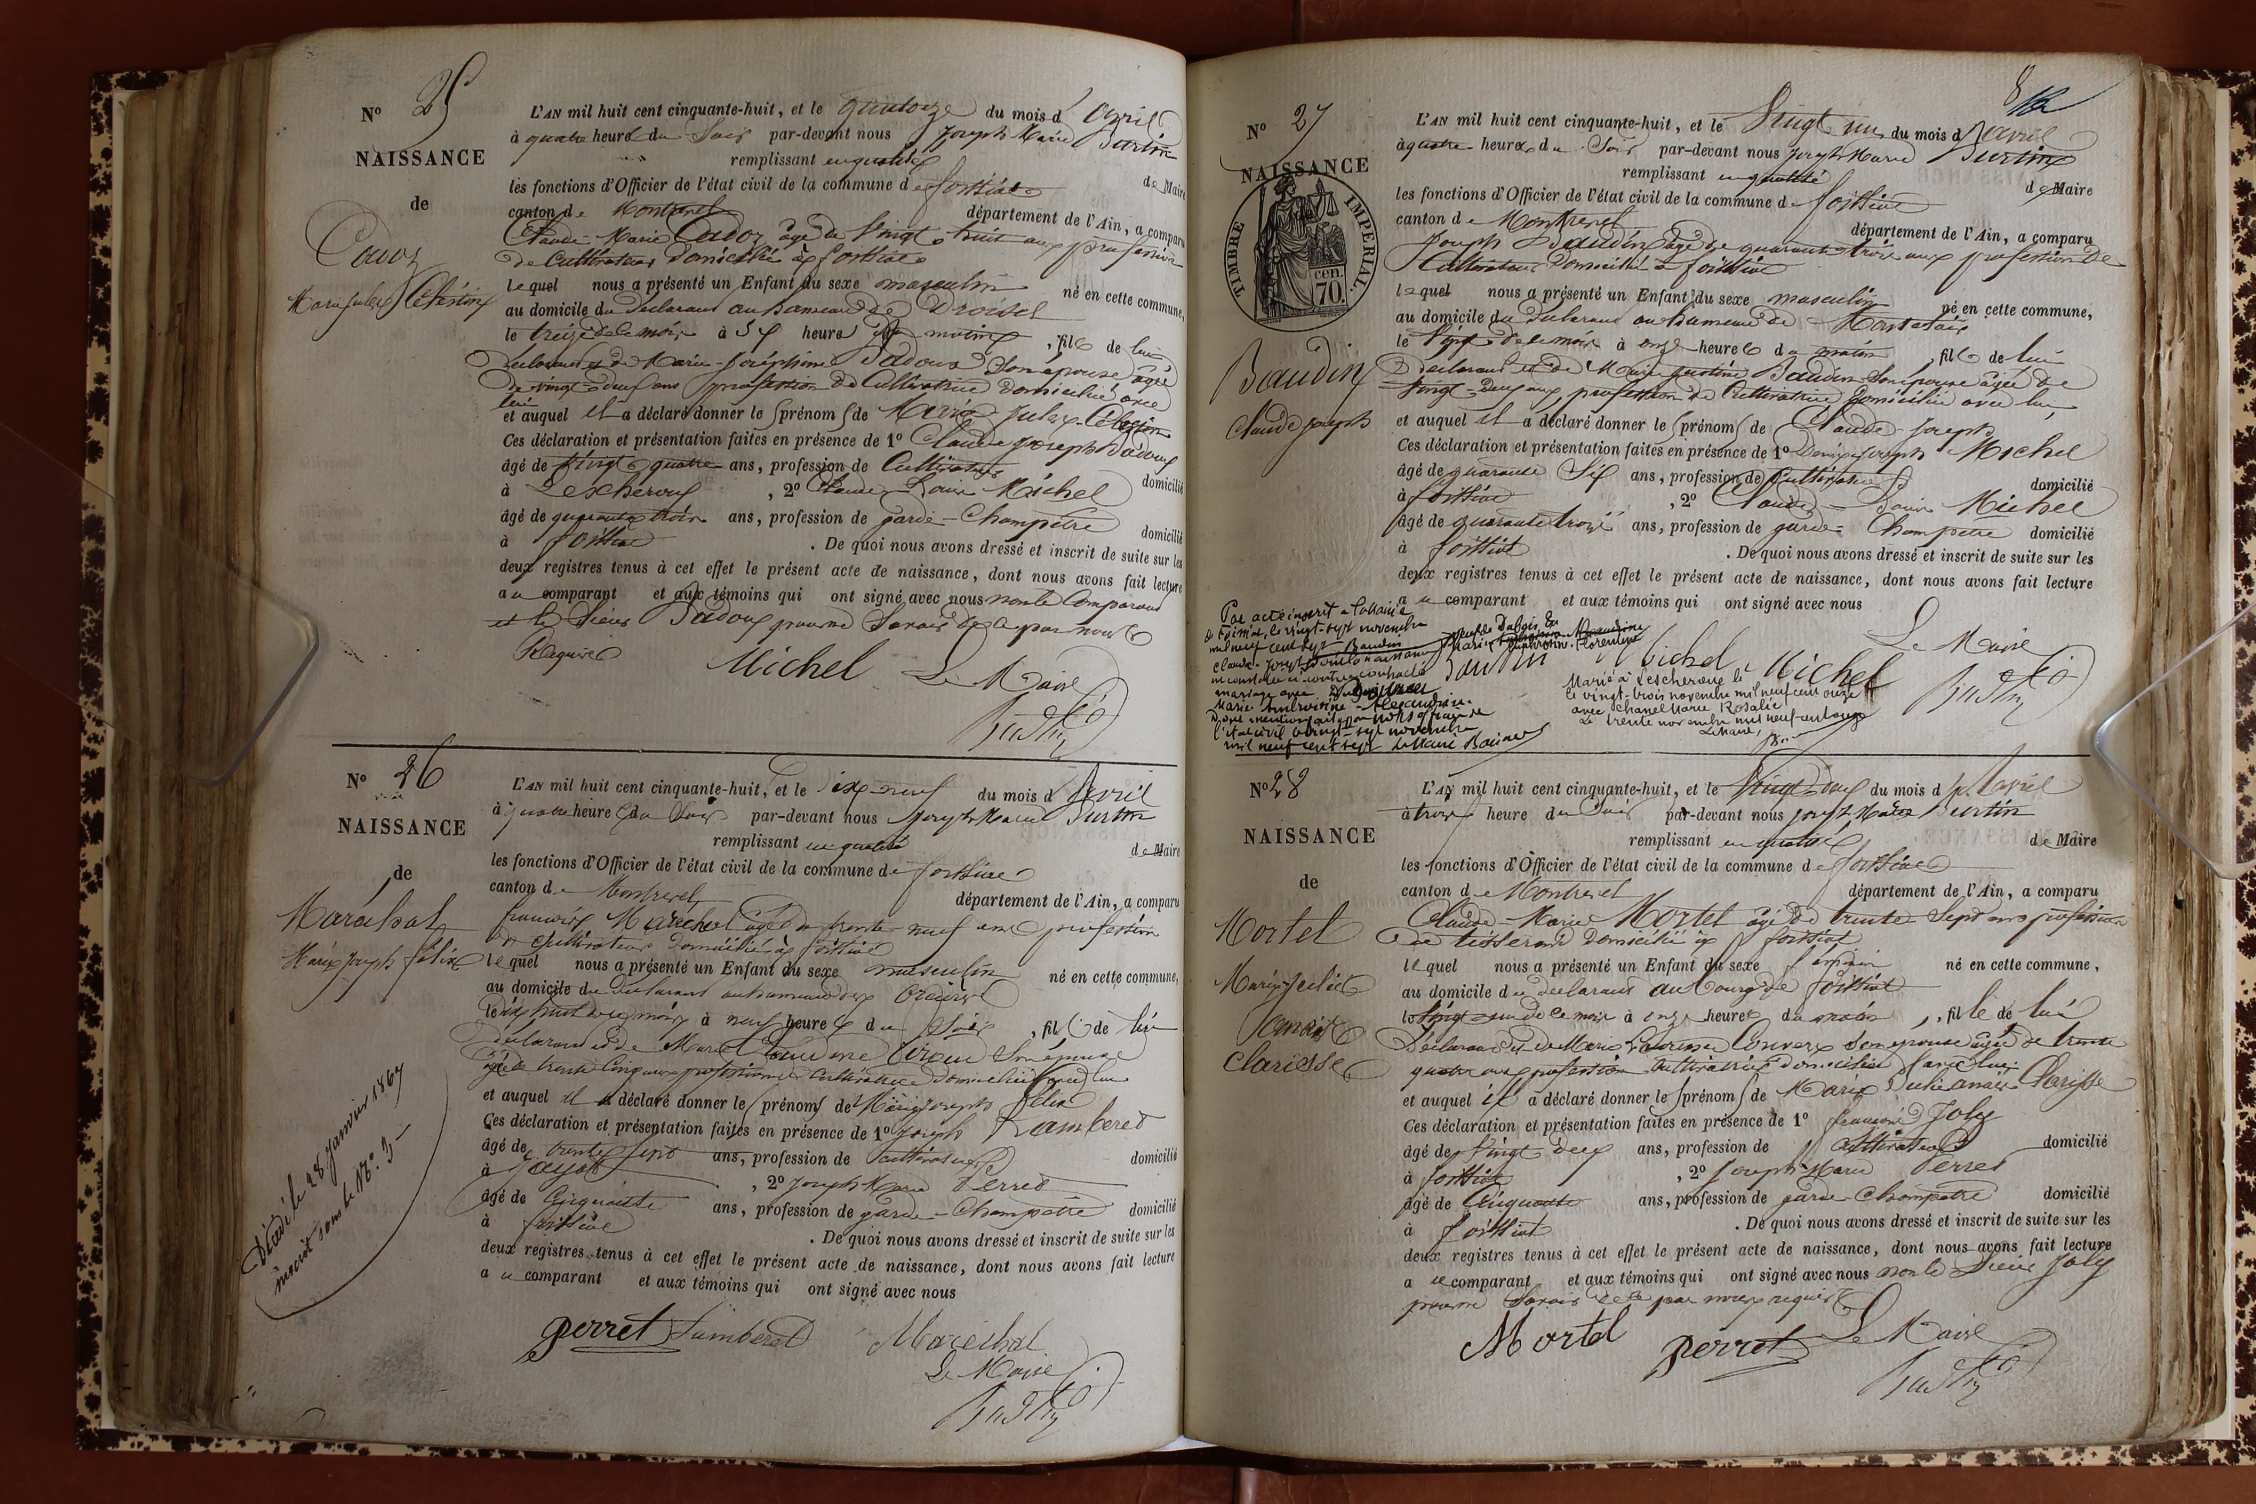 N° 25
NAISSANCE
de
Cadoz
Marie Jules Célestin
L'AN mil huit cent cinquante-huit, et le quatorze du mois d'avril
à quatre heures du soir par-devant nous Joseph Marie Burtin
remplissant en qualité de Maire
les fonctions d'Officier de l'état civil de la commune de foissiat
canton de Montrevel département de l'Ain, a comparu
Claude-Marie Cadoz âgé de vingt-huit ans profession
de Cultivateur domicilié à foissiat
lequel nous a présenté un Enfant du sexe masculin né en cette commune,
au domicile du déclarant au hameau de
le treize de ce mois à heure du matin, fils de lui
déclarant et de Marie-Joséphine Badoux son épouse âgée
de vingt-neuf ans profession de Cultivatrice domiciliée avec
lui
et auquel il a déclaré donner les prénoms de Marie Jules Célestin
Ces déclaration et présentation faites en présence de 1° Claude Joseph Badoux
âgé de vingt-quatre ans, profession de Cultivateur domicilié
à Lescheroux, 2° Claude Louis Michel
âgé de quarante trois ans, profession de garde-Champêtre domicilié
à foissiat. De quoi nous avons dressé et inscrit de suite sur les
deux registres tenus à cet effet le présent acte de naissance, dont nous avons fait lecture
au comparant et aux témoins qui ont signé avec nous non le Comparant
et le sieur Badoux pour ne savoir de ce par nous
Requis
Michel Le Maire
Burtin
N° 26
NAISSANCE
de
Maréchal
Marie Joseph félix
Décédé le 28 Janvier 1867
inscrit sous le N°. 3
L'AN mil huit cent cinquante-huit, et le dix-neuf du mois d'avril
à quatre heures du soir par-devant nous Joseph Marie Burtin
remplissant en qualité de Maire
les fonctions d'Officier de l'état civil de la commune de foissiat
canton de Montrevel département de l'Ain, a comparu
françois Maréchal âgé de trente-neuf ans profession
de cultivateur domicilié à foissiat
lequel nous a présenté un Enfant du sexe masculin né en cette commune,
au domicile du déclarant au hameau de
le dix huit de ce mois à neuf heures du soir, fils de lui
déclarant et de Marie Claudine son épouse
âgée de trente cinq ans profession de cultivatrice domiciliée avec lui
et auquel il a déclaré donner les prénoms de Marie Joseph félix
Ces déclaration et présentation faites en présence de 1° Joseph Lamberet
âgé de trente sept ans, profession de cultivateur domicilié
à Jayat, 2° Joseph Marie Perret
âgé de Cinquante ans, profession de garde-Champêtre domicilié
à foissiat. De quoi nous avons dressé et inscrit de suite sur les
deux registres tenus à cet effet le présent acte de naissance, dont nous avons fait lecture
au comparant et aux témoins qui ont signé avec nous
perret Lamberet Maréchal
Le Maire
Burtin
8
N° 27
NAISSANCE
TIMBRE IMPERIAL.
70 cen.
Baudin
Claude Joseph
L'AN mil huit cent cinquante-huit, et le vingt un du mois d'avril
à quatre heures du soir par-devant nous Joseph Marie Burtin
remplissant en qualité de Maire
les fonctions d'Officier de l'état civil de la commune de foissiat
canton de Montrevel département de l'Ain, a comparu
Joseph Baudin âgé de quarante trois ans profession de
Cultivateur domicilié à foissiat
lequel nous a présenté un Enfant du sexe masculin né en cette commune,
au domicile du déclarant au hameau de
le vingt de ce mois à onze heures du matin, fils de lui
déclarant et de Marie Baudin son épouse âgée de
vingt-deux ans, profession de Cultivatrice domiciliée avec lui,
et auquel il a déclaré donner les prénoms de Claude-Joseph
Ces déclaration et présentation faites en présence de 1° Denis Joseph Michel
âgé de quarante six ans, profession de Cultivateur domicilié
à foissiat, 2° Claude-Louis Michel
âgé de quarante trois ans, profession de garde-Champêtre domicilié
à foissiat. De quoi nous avons dressé et inscrit de suite sur les
deux registres tenus à cet effet le présent acte de naissance, dont nous avons fait lecture
au comparant et aux témoins qui ont signé avec nous
Par acte inscrit à la Mairie
le vingt-sept novembre
mil neuf cent sept Baudin
Claude-Joseph dont la naissance
est constatée ci-contre a contracté
mariage avec
Marie
Dont mention faite par nous officier de
l'état civil le vingt-sept novembre
mil neuf cent sept Le Maire
Baudin Michel Michel Le Maire
Burtin
Marié à Lescheroux le
vingt-trois novembre mil neuf cent onze
avec Chanel Marie Rosalie
Le trente novembre mil neuf cent onze
Le Maire,
N° 28
NAISSANCE
de
Mortel
Marie Julie
Anaïs
Clarisse
L'AN mil huit cent cinquante-huit, et le vingt-deux du mois d'avril
à trois heure du soir par-devant nous Joseph Marie Burtin
remplissant en qualité de Maire
les fonctions d'Officier de l'état civil de la commune de foissiat
canton de Montrevel département de l'Ain, a comparu
Claude-Marie Mortel âgé de trente sept ans profession
de tisserand domicilié à foissiat
lequel nous a présenté un Enfant du sexe féminin né en cette commune,
au domicile du déclarant au bourg de foissiat
le vingt-un de ce mois à onze heures du matin, fille de lui
déclarant et de Marie Laurence Convert son épouse âgée de trente
quatre ans profession cultivatrice domiciliée avec lui
et auquel il a déclaré donner les prénoms de Marie Julie anaïs Clarisse
Ces déclaration et présentation faites en présence de 1° françois Joly
âgé de vingt-deux ans, profession de cultivateur domicilié
à foissiat, 2° Joseph-Marie Perret
âgé de Cinquante ans, profession de garde-Champêtre domicilié
à foissiat. De quoi nous avons dressé et inscrit de suite sur les
deux registres tenus à cet effet le présent acte de naissance, dont nous avons fait lecture
au comparant et aux témoins qui ont signé avec nous non le sieur Joly
pour ne savoir de ce par nous requis
Mortel perret Le Maire
Burtin